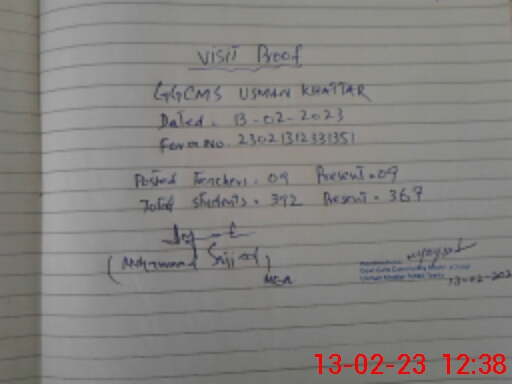 Visit Proof
GGCMS USMAN KHATTAR
Dated. 13-02-2023
Form No. 23021312331351
Posted Teachers. 09 Present. 09
Total Students. 392 Present. 369
(Mohammad Sajjad)
MEA
13-02-202
13-02-23 12:38